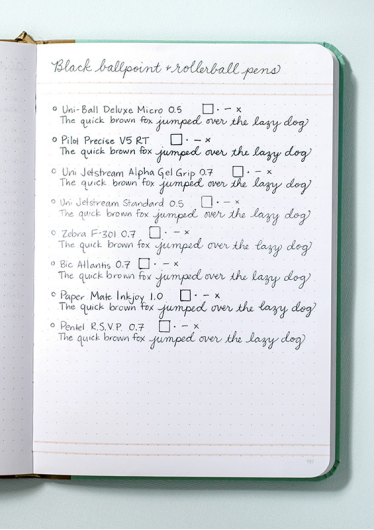 Black ballpoint + rollerball pens
Uni-Ball Deluxe Micro 0.5 □ · – ×
The quick brown fox jumped over the lazy dog
Pilot Precise V5 RT □ · – ×
The quick brown fox jumped over the lazy dog
Uni Jetstream Alpha Gel Grip 0.7 □ · – ×
The quick brown fox jumped over the lazy dog
Uni Jetstream Standard 0.5 □ · – ×
The quick brown fox jumped over the lazy dog
Zebra F-301 0.7 □ · – ×
The quick brown fox jumped over the lazy dog
Bic Atlantis 0.7 □ · – ×
The quick brown fox jumped over the lazy dog
Paper Mate Inkjoy 1.0 □ · – ×
The quick brown fox jumped over the lazy dog
Pentel R.S.V.P. 0.7 □ · – ×
The quick brown fox jumped over the lazy dog